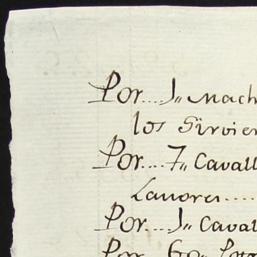 Por.... 1,, Mach
los Sirvien
Por.... 7,, Cavall
Lavores.....
Por.... 1,, Caval
Por.... 60,,